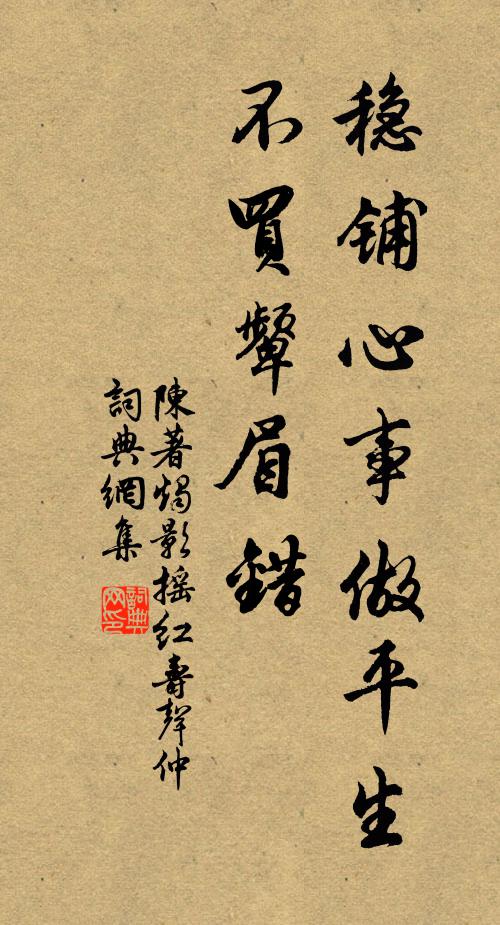 穏鋪心事做平生
不買顰眉錯
陳著燭影搖紅壽聲仲
詞典網集
詞典網印